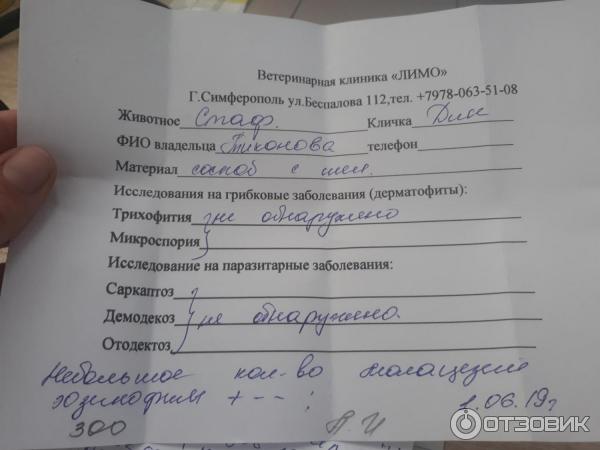 Ветеринарная клиника «ЛИМО»
Г.Симферополь ул.Беспалова 112,тел. +7978-063-51-08
Животное Стаф. Кличка
ФИО владельца Тихонова телефон
Материал соскоб с шеи.
Исследования на грибковые заболевания (дерматофиты):
Трихофития не обнаружено
Микроспория
Исследование на паразитарные заболевания:
Саркаптоз
Демодекоз не обнаружено.
Отодектоз
Небольшое кол-во
+ -- ; 1.06.19г
300 А.И
ОТЗОВИК